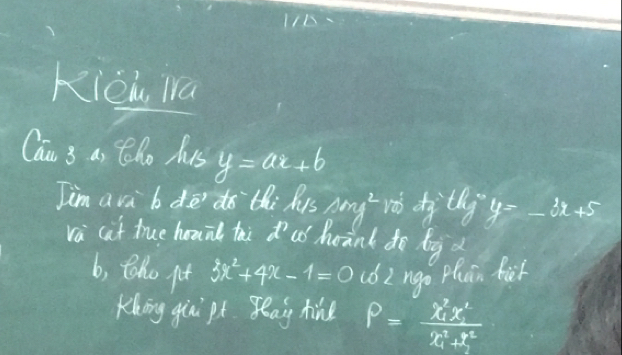 Kiểm tra
Câu 3 a, Cho h/s y = ax + b
Tìm a và b để đồ thị h/s song² với đg thg y = -3x + 5
và cắt trục hoành tại đ' có hoành độ bg 2
b, Cho pt 3x² + 4x - 1 = 0 có 2 ngo phân biệt
Không giải pt. Hãy tính P = x₁²x₂² / x₁² + x₂²